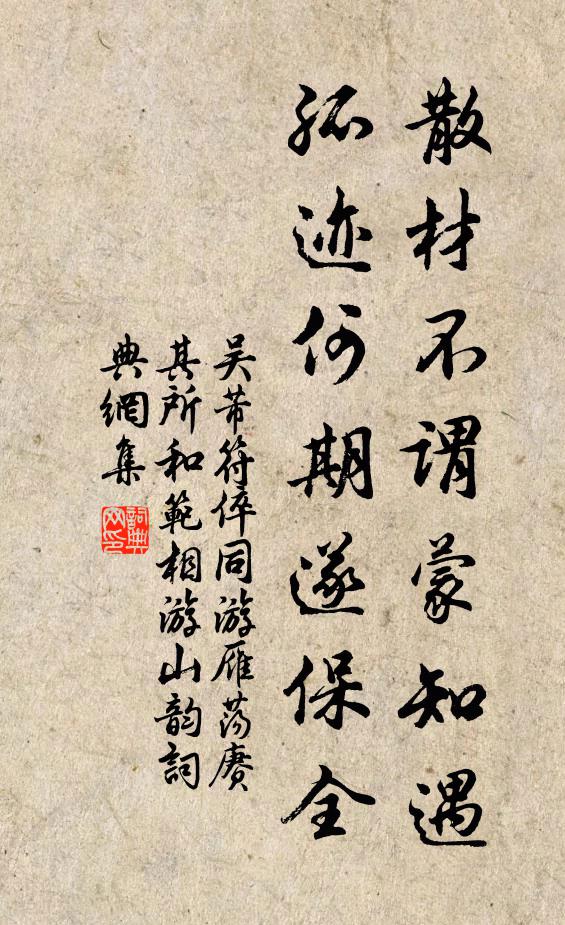 散材不谓蒙知遇
孤迹何期遂保全
吴芾符倅同游雁荡赓
其所和範相游山韵詞
典網集
詞典
网印